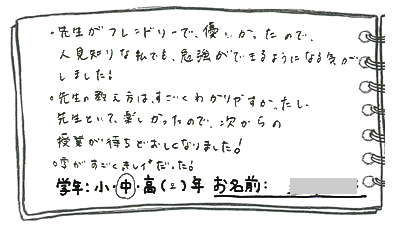 ・先生がフレンドリーで、優しかったので、
人見知りな私でも、勉強ができるようになる気が
しました!
・先生の教え方は、すごくわかりやすかったし、
先生といて、楽しかったので、次からの
授業が待ちどおしくなりました!
・字がすごくきれいだった!
学年:小・中・高(2)年 お名前: